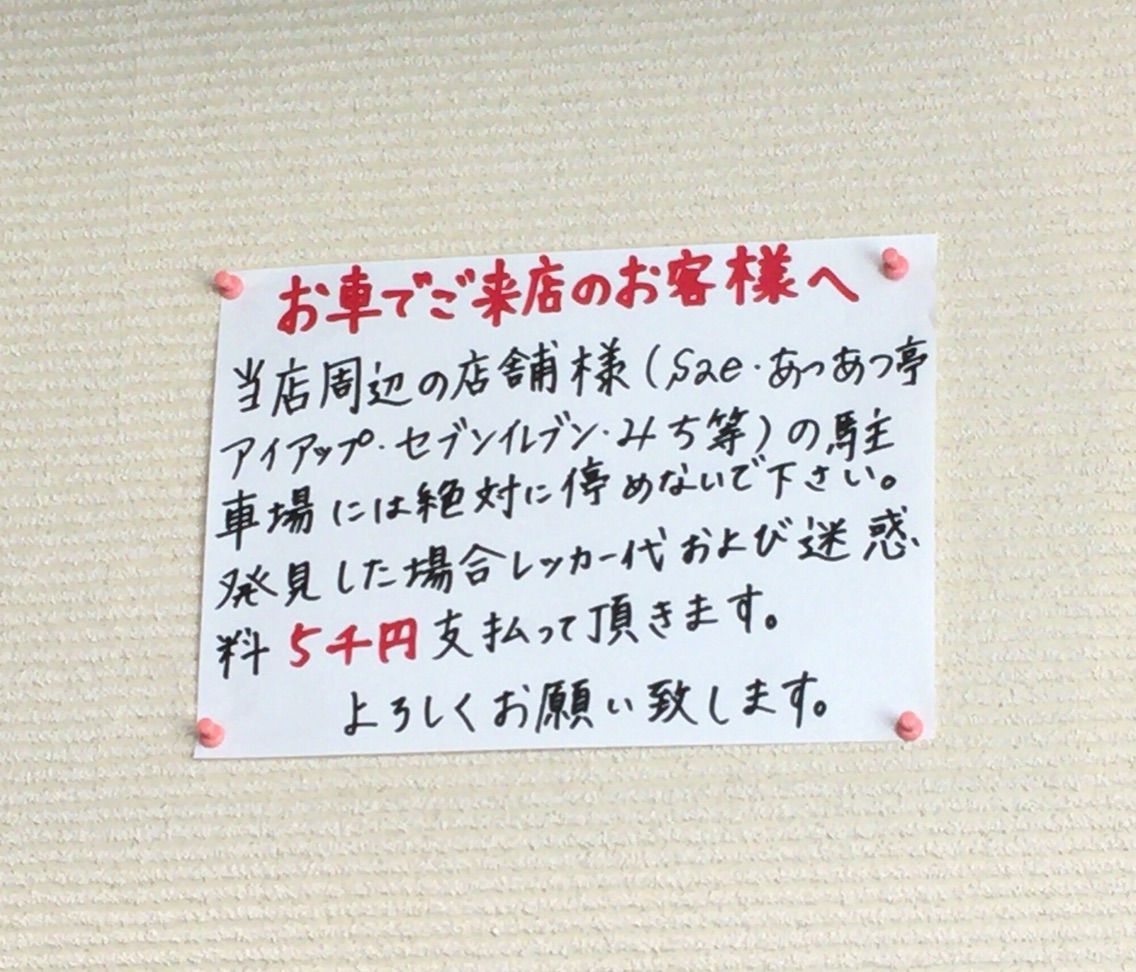 お車でご来店のお客様へ
当店周辺の店舗様(Sae・あつあつ亭
アイアップ・セブンイレブン・みち等)の駐
車場には絶対に停めないで下さい。
発見した場合レッカー代および迷惑
料5千円支払って頂きます。
よろしくお願い致します。